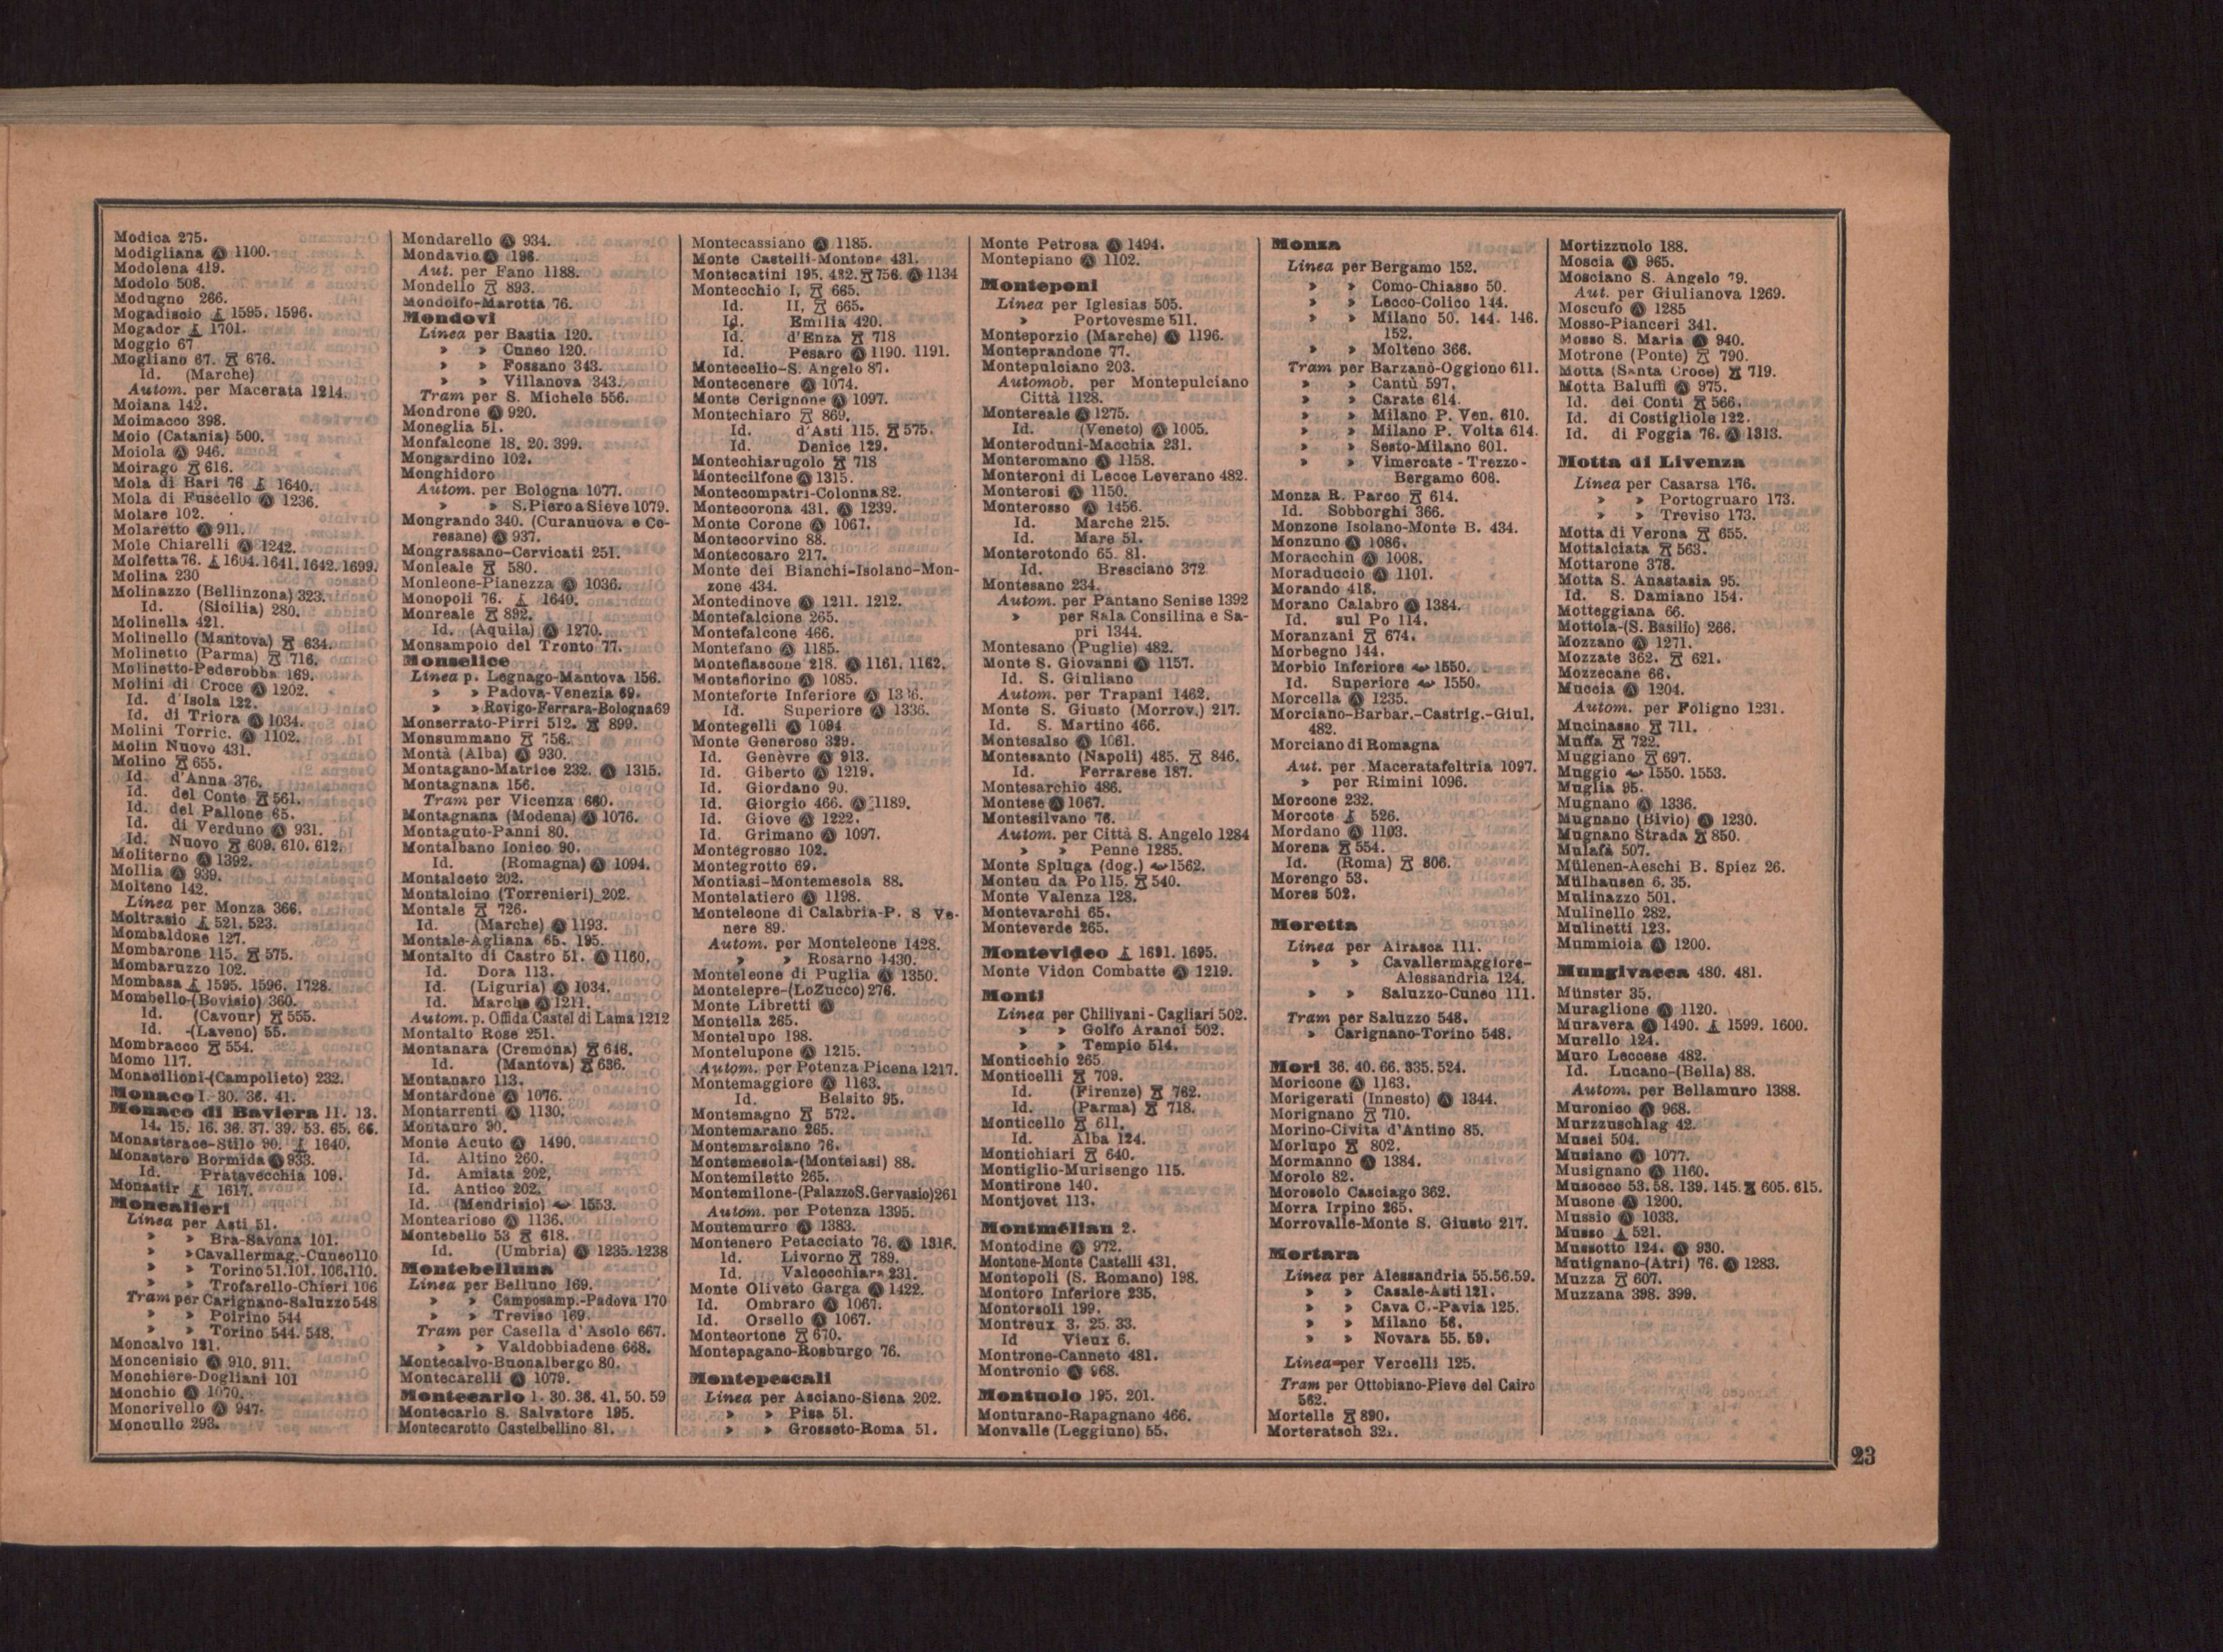 Modica 275.
Modigliana Ⓐ 1100.
Modolena 419.
Modolo 508.
Modugno 266.
Mogadiscio 1595. 1596.
Mogador 1701.
Moggio 67
Mogliano 67. 676.
Id. (Marche)
Autom. per Macerata 1214.
Moiana 142.
Moimacco 398.
Moio (Catania) 500.
Moiola Ⓐ 946.
Moirago 616.
Mola di Bari 76 1640.
Mola di Fuscello Ⓐ 1236.
Molare 102.
Molaretto Ⓐ 911.
Mole Chiarelli Ⓐ 1242.
Molfetta 76. 1604. 1641. 1642. 1699.
Molina 230
Molinazzo (Bellinzona) 323.
Id. (Sicilia) 280.
Molinella 421.
Molinello (Mantova) 634.
Molinetto (Parma) 716.
Molinetto-Pederobba 169.
Molini di Croce Ⓐ 1202.
Id. d'Isola 122.
Id. di Triora Ⓐ 1034.
Molini Torric. Ⓐ 1102.
Molin Nuovo 431.
Molino 655.
Id. d'Anna 376.
Id. del Conte 561.
Id. del Pallone 65.
Id. di Verduno Ⓐ 931.
Id. Nuovo 609. 610. 612.
Moliterno Ⓐ 1392.
Mollia Ⓐ 939.
Molteno 142.
Linea per Monza 366.
Moltrasio 521. 523.
Mombaldone 127.
Mombarone 115. 575.
Mombaruzzo 102.
Mombasa 1595. 1596. 1728.
Mombello-(Bovisio) 360.
Id. (Cavour) 555.
Id. -(Laveno) 55.
Mombracco 554.
Momo 117.
Monacilioni-(Campolieto) 232.
Monaco 1. 30. 36. 41.
Monaco di Baviera 11. 13.
14. 15. 16. 36. 37. 39. 53. 65. 66.
Monasterace-Stilo 90. 1640.
Monastero Bormida Ⓐ 933.
Id. Pratavecchia 109.
Monastir 1617.
Moncalieri
Linea per Asti 51.
» » Bra-Savona 101.
» » Cavallermag.-Cuneo 110
» » Torino 51. 101. 106. 110.
» » Trofarello-Chieri 106
Tram per Carignano-Saluzzo 548
» » Poirino 544
» » Torino 544. 548.
Moncalvo 121.
Moncenisio Ⓐ 910. 911.
Monchiero-Dogliani 101
Monchio Ⓐ 1070.
Moncrivello Ⓐ 947.
Moncullo 293.
Mondarello Ⓐ 934.
Mondavio Ⓐ 196.
Aut. per Fano 1188.
Mondello 893.
Mondolfo-Marotta 76.
Mondovi
Linea per Bastia 120.
» » Cuneo 120.
» » Fossano 343.
» » Villanova 343.
Tram per S. Michele 556.
Mondrone Ⓐ 920.
Moneglia 51.
Monfalcone 18. 20. 399.
Mongardino 102.
Monghidoro
Autom. per Bologna 1077.
» » S. Piero a Sieve 1079.
Mongrando 340. (Curanuova e Ce-
resane) Ⓐ 937.
Mongrassano-Cervicati 251.
Monleale 580.
Monleone-Pianezza Ⓐ 1036.
Monopoli 76. 1640.
Monreale 892.
Id. (Aquila) Ⓐ 1270.
Monsampolo del Tronto 77.
Monselice
Linea p. Legnago-Mantova 156.
» » Padova-Venezia 69.
» » Rovigo-Ferrara-Bologna 69
Monserrato-Pirri 512. 899.
Monsummano 756.
Montà (Alba) Ⓐ 930.
Montagano-Matrice 232. Ⓐ 1315.
Montagnana 156.
Tram per Vicenza 660.
Montagnana (Modena) Ⓐ 1076.
Montaguto-Panni 80.
Montalbano Ionico 90.
Id. (Romagna) Ⓐ 1094.
Montalceto 202.
Montalcino (Torrenieri) 202.
Montale 726.
Id. (Marche) Ⓐ 1193.
Montale-Agliana 65. 195.
Montalto di Castro 51. Ⓐ 1160.
Id. Dora 113.
Id. (Liguria) Ⓐ 1034.
Id. Marche Ⓐ 1211.
Autom. p. Offida Castel di Lama 1212
Montalto Rose 251.
Montanara (Cremona) 646.
Id. (Mantova) 636.
Montanaro 113.
Montardone Ⓐ 1076.
Montarrenti Ⓐ 1130.
Montauro 90.
Monte Acuto Ⓐ 1490.
Id. Altino 260.
Id. Amiata 202.
Id. Antico 202.
Id. (Mendrisio) 1553.
Montearioso Ⓐ 1136.
Montebello 53 618.
Id. (Umbria) Ⓐ 1235. 1238
Montebelluna
Linea per Belluno 169.
» » Camposamp.-Padova 170
» » Treviso 169.
Tram per Casella d'Asolo 667.
» » Valdobbiadene 668.
Montecalvo-Buonalbergo 80.
Montecarelli Ⓐ 1079.
Montecarlo 1. 30. 36. 41. 50. 59
Montecarlo S. Salvatore 195.
Montecarotto Castelbellino 81.
Montecassiano Ⓐ 1185.
Monte Castelli-Montone 431.
Montecatini 195. 482. 756. Ⓐ 1134
Montecchio I, 665.
Id. II, 665.
Id. Emilia 420.
Id. d'Enza 718
Id. Pesaro Ⓐ 1190. 1191.
Montecelio-S. Angelo 87.
Montecenere Ⓐ 1074.
Monte Cerignone Ⓐ 1097.
Montechiaro 869.
Id. d'Asti 115. 575.
Id. Denice 129.
Montechiarugolo 718
Montecilfone Ⓐ 1315.
Montecompatri-Colonna 82.
Montecorona 431. Ⓐ 1239.
Monte Corone Ⓐ 1067.
Montecorvino 88.
Montecosaro 217.
Monte dei Bianchi-Isolano-Mon-
zone 434.
Montedinove Ⓐ 1211. 1212.
Montefalcione 265.
Montefalcone 466.
Montefano Ⓐ 1185.
Montefiascone 218. Ⓐ 1161. 1162.
Montefiorino Ⓐ 1085.
Monteforte Inferiore Ⓐ 1336.
Id. Superiore Ⓐ 1336.
Montegelli Ⓐ 1094
Monte Generoso 329.
Id. Genèvre Ⓐ 913.
Id. Giberto Ⓐ 1219.
Id. Giordano 90.
Id. Giorgio 466. Ⓐ 1189.
Id. Giove Ⓐ 1222.
Id. Grimano Ⓐ 1097.
Montegrosso 102.
Montegrotto 69.
Montiasi-Montemesola 88.
Montelatiero Ⓐ 1198.
Monteleone di Calabria-P. S Ve-
nere 89.
Autom. per Monteleone 1428.
» » Rosarno 1430.
Monteleone di Puglia Ⓐ 1350.
Montelepre-(Lo Zucco) 276.
Monte Libretti Ⓐ
Montella 265.
Montelupo 198.
Montelupone Ⓐ 1215.
Autom. per Potenza Picena 1217.
Montemaggiore Ⓐ 1163.
Id. Belsito 95.
Montemagno 572.
Montemarano 265.
Montemarciano 76.
Montemesola-(Monteiasi) 88.
Montemiletto 265.
Montemilone-(Palazzo S. Gervasio) 261
Autom. per Potenza 1395.
Montemurro Ⓐ 1383.
Montenero Petacciato 76. Ⓐ 1316.
Id. Livorno 789.
Id. Valcocchiara 231.
Monte Oliveto Garga Ⓐ 1422.
Id. Ombraro Ⓐ 1067.
Id. Orsello Ⓐ 1067.
Monteortone 670.
Montepagano-Rosburgo 76.
Montepescali
Linea per Asciano-Siena 202.
» » Pisa 51.
» » Grosseto-Roma 51.
Monte Petrosa Ⓐ 1494.
Montepiano Ⓐ 1102.
Monteponi
Linea per Iglesias 505.
» Portovesme 511.
Monteporzio (Marche) Ⓐ 1196.
Monteprandone 77.
Montepulciano 203.
Automob. per Montepulciano
Città 1128.
Montereale Ⓐ 1275.
Id. (Veneto) Ⓐ 1005.
Monteroduni-Macchia 231.
Monteromano Ⓐ 1158.
Monteroni di Lecce Leverano 482.
Monterosi Ⓐ 1150.
Monterosso Ⓐ 1456.
Id. Marche 215.
Id. Mare 51.
Monterotondo 65. 81.
Id. Bresciano 372
Montesano 234.
Autom. per Pantano Senise 1392
» per Sala Consilina e Sa-
pri 1344.
Montesano (Puglie) 482.
Monte S. Giovanni Ⓐ 1157.
Id. S. Giuliano
Autom. per Trapani 1462.
Monte S. Giusto (Morrov.) 217.
Id. S. Martino 466.
Montesalso Ⓐ 1061.
Montesanto (Napoli) 485. 846.
Id. Ferrarese 187.
Montesarchio 486.
Montese Ⓐ 1067.
Montesilvano 76.
Autom. per Città S. Angelo 1284
» » Penne 1285.
Monte Spluga (dog.) 1562.
Monteu da Po 115. 540.
Monte Valenza 128.
Montevarchi 65.
Monteverde 265.
Montevideo 1691. 1695.
Monte Vidon Combatte Ⓐ 1219.
Monti
Linea per Chilivani-Cagliari 502.
» » Golfo Aranci 502.
» » Tempio 514.
Monticchio 265
Monticelli 709.
Id. (Firenze) 762.
Id. (Parma) 718.
Monticello 611.
Id. Alba 124.
Montichiari 640.
Montiglio-Murisengo 115.
Montirone 140.
Montjovet 113.
Montmélian 2.
Montodine Ⓐ 972.
Montone-Monte Castelli 431.
Montopoli (S. Romano) 198.
Montoro Inferiore 235.
Montorsoli 199.
Montreux 3. 25. 33.
Id Vieux 6.
Montrone-Canneto 481.
Montronio Ⓐ 968.
Montuolo 195. 201.
Monturano-Rapagnano 466.
Monvalle (Leggiuno) 55.
Monza
Linea per Bergamo 152.
» » Como-Chiasso 50.
» » Lecco-Colico 144.
» » Milano 50. 144. 146.
152.
» » Molteno 366.
Tram per Barzanò-Oggiono 611.
» » Cantù 597.
» » Carate 614.
» » Milano P. Ven. 610.
» » Milano P. Volta 614.
» » Sesto-Milano 601.
» » Vimercate - Trezzo-
Bergamo 606.
Monza R. Parco 614.
Id. Sobborghi 366.
Monzone Isolano-Monte B. 434.
Monzuno Ⓐ 1086.
Moracchin Ⓐ 1008.
Moraduccio Ⓐ 1101.
Morando 418.
Morano Calabro Ⓐ 1384.
Id. sul Po 114.
Moranzani 674.
Morbegno 144.
Morbio Inferiore 1550.
Id. Superiore 1550.
Morcella Ⓐ 1235.
Morciano-Barbar.-Castrig.-Giul.
482.
Morciano di Romagna
Aut. per Maceratafeltria 1097.
» per Rimini 1096.
Morcone 232.
Morcote 526.
Mordano Ⓐ 1103.
Morena 554.
Id. (Roma) 806.
Morengo 53.
Mores 502.
Moretta
Linea per Airasca 111.
» » Cavallermaggiore-
Alessandria 124.
» » Saluzzo-Cuneo 111.
Tram per Saluzzo 548.
» Carignano-Torino 548.
Mori 36. 40. 66. 335. 524.
Moricone Ⓐ 1163.
Morigerati (Innesto) Ⓐ 1344.
Morignano 710.
Morino-Civita d'Antino 85.
Morlupo 802.
Mormanno Ⓐ 1384.
Morolo 82.
Morosolo Casciago 362.
Morra Irpino 265.
Morrovalle-Monte S. Giusto 217.
Mortara
Linea per Alessandria 55. 56. 59.
» » Casale-Asti 121.
» » Cava C.-Pavia 125.
» » Milano 56.
» » Novara 55. 59.
Linea per Vercelli 125.
Tram per Ottobiano-Pieve del Cairo
562.
Mortelle 890.
Morteratsch
Mortizzuolo 188.
Moscia Ⓐ 965.
Mosciano S. Angelo 79.
Aut. per Giulianova 1269.
Moscufo Ⓐ 1285
Mosso-Pianceri 341.
Mosso S. Maria Ⓐ 940.
Motrone (Ponte) 790.
Motta (Santa Croce) 719.
Motta Baluffi Ⓐ 975.
Id. dei Conti 566.
Id. di Costigliole 122.
Id. di Foggia 76. Ⓐ 1313.
Motta di Livenza
Linea per Casarsa 176.
» » Portogruaro 173.
» » Treviso 173.
Motta di Verona 655.
Mottalciata 563.
Mottarone 378.
Motta S. Anastasia 95.
Id. S. Damiano 154.
Motteggiana 66.
Mottola-(S. Basilio) 266.
Mozzano Ⓐ 1271.
Mozzate 362. 621.
Mozzecane 66.
Muccia Ⓐ 1204.
Autom. per Foligno 1231.
Mucinasso 711.
Muffa 722.
Muggiano 697.
Muggio 1550. 1553.
Muglia 95.
Mugnano Ⓐ 1336.
Mugnano (Bivio) Ⓐ 1230.
Mugnano Strada 850.
Mulafà 507.
Mülenen-Aeschi B. Spiez 26.
Mülhausen 6. 35.
Mulinazzo 501.
Mulinello 282.
Mulinetti 123.
Mummioia Ⓐ 1200.
Mungivacca 480. 481.
Münster 35.
Muraglione Ⓐ 1120.
Muravera Ⓐ 1490. 1599. 1600.
Murello 124.
Muro Leccese 482.
Id. Lucano-(Bella) 88.
Autom. per Bellamuro 1388.
Muronico Ⓐ 968.
Murzzuschlag 42.
Musei 504.
Musiano Ⓐ 1077.
Musignano Ⓐ 1160.
Musocco 53. 58. 139. 145. 605. 615.
Musone Ⓐ 1200.
Mussio Ⓐ 1033.
Musso 521.
Mussotto 124. Ⓐ 930.
Mutignano-(Atri) 76. Ⓐ 1283.
Muzza 607.
Muzzana 398. 399.
23